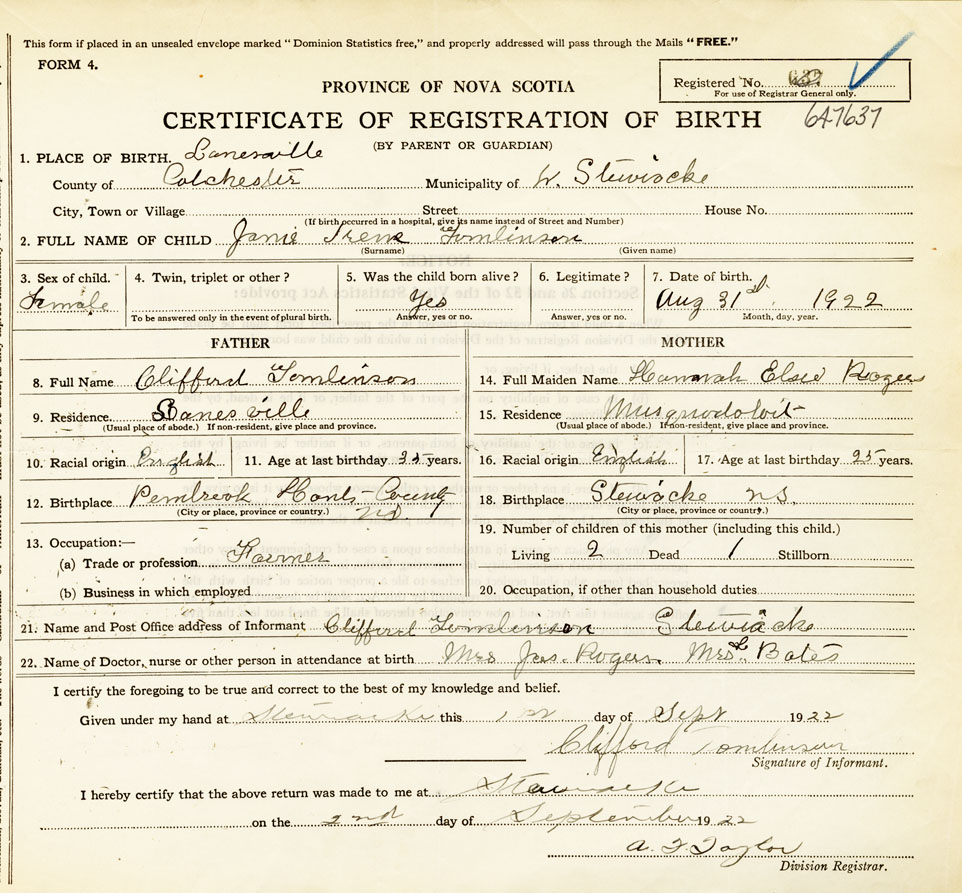 This form if placed in an unsealed envelope marked "Dominion Statistics free," and properly addressed will pass through the Mails "FREE."
FORM 4.
Registered No. 637
For use of Registrar General only.
PROVINCE OF NOVA SCOTIA
647637
CERTIFICATE OF REGISTRATION OF BIRTH
(BY PARENT OR GUARDIAN)
1. PLACE OF BIRTH. Lanesville
County of Colchester Municipality of W. Stewiacke
City, Town or Village Street House No.
(If birth occurred in a hospital, give its name instead of Street and Number)
2. FULL NAME OF CHILD Janie Irene Tomlinson
(Surname) (Given name)
3. Sex of child. 4. Twin, triplet or other? 5. Was the child born alive? 6. Legitimate? 7. Date of birth.
Female Yes Aug 31st. 1922
To be answered only in the event of plural birth. Answer, yes or no. Answer, yes or no. Month, day, year.
FATHER MOTHER
8. Full Name Clifford Tomlinson 14. Full Maiden Name Hannah Elsie Rogers
9. Residence. Lanesville 15. Residence Musquodoboit
(Usual place of abode.) If non-resident, give place and province. (Usual place of abode.) If non-resident, give place and province.
10. Racial origin English 11. Age at last birthday 35 years. 16. Racial origin English 17. Age at last birthday 25 years.
12. Birthplace Pembrook Hants County NS 18. Birthplace Stewiacke NS.
(City or place, province or country.) (City or place, province or country.)
13. Occupation:— 19. Number of children of this mother (including this child.)
(a) Trade or profession Farmer Living 2 Dead 1 Stillborn
(b) Business in which employed 20. Occupation, if other than household duties
21. Name and Post Office address of Informant Clifford Tomlinson Stewiacke
22. Name of Doctor, nurse or other person in attendance at birth Mrs Jas. Rogers. Mrs L. Bates
I certify the foregoing to be true and correct to the best of my knowledge and belief.
Given under my hand at Stewiacke this day of Sept 1922
Clifford Tomlinson
Signature of Informant.
I hereby certify that the above return was made to me at Stewiacke
on the 2nd day of September 1922
A. F. Taylor
Division Registrar.